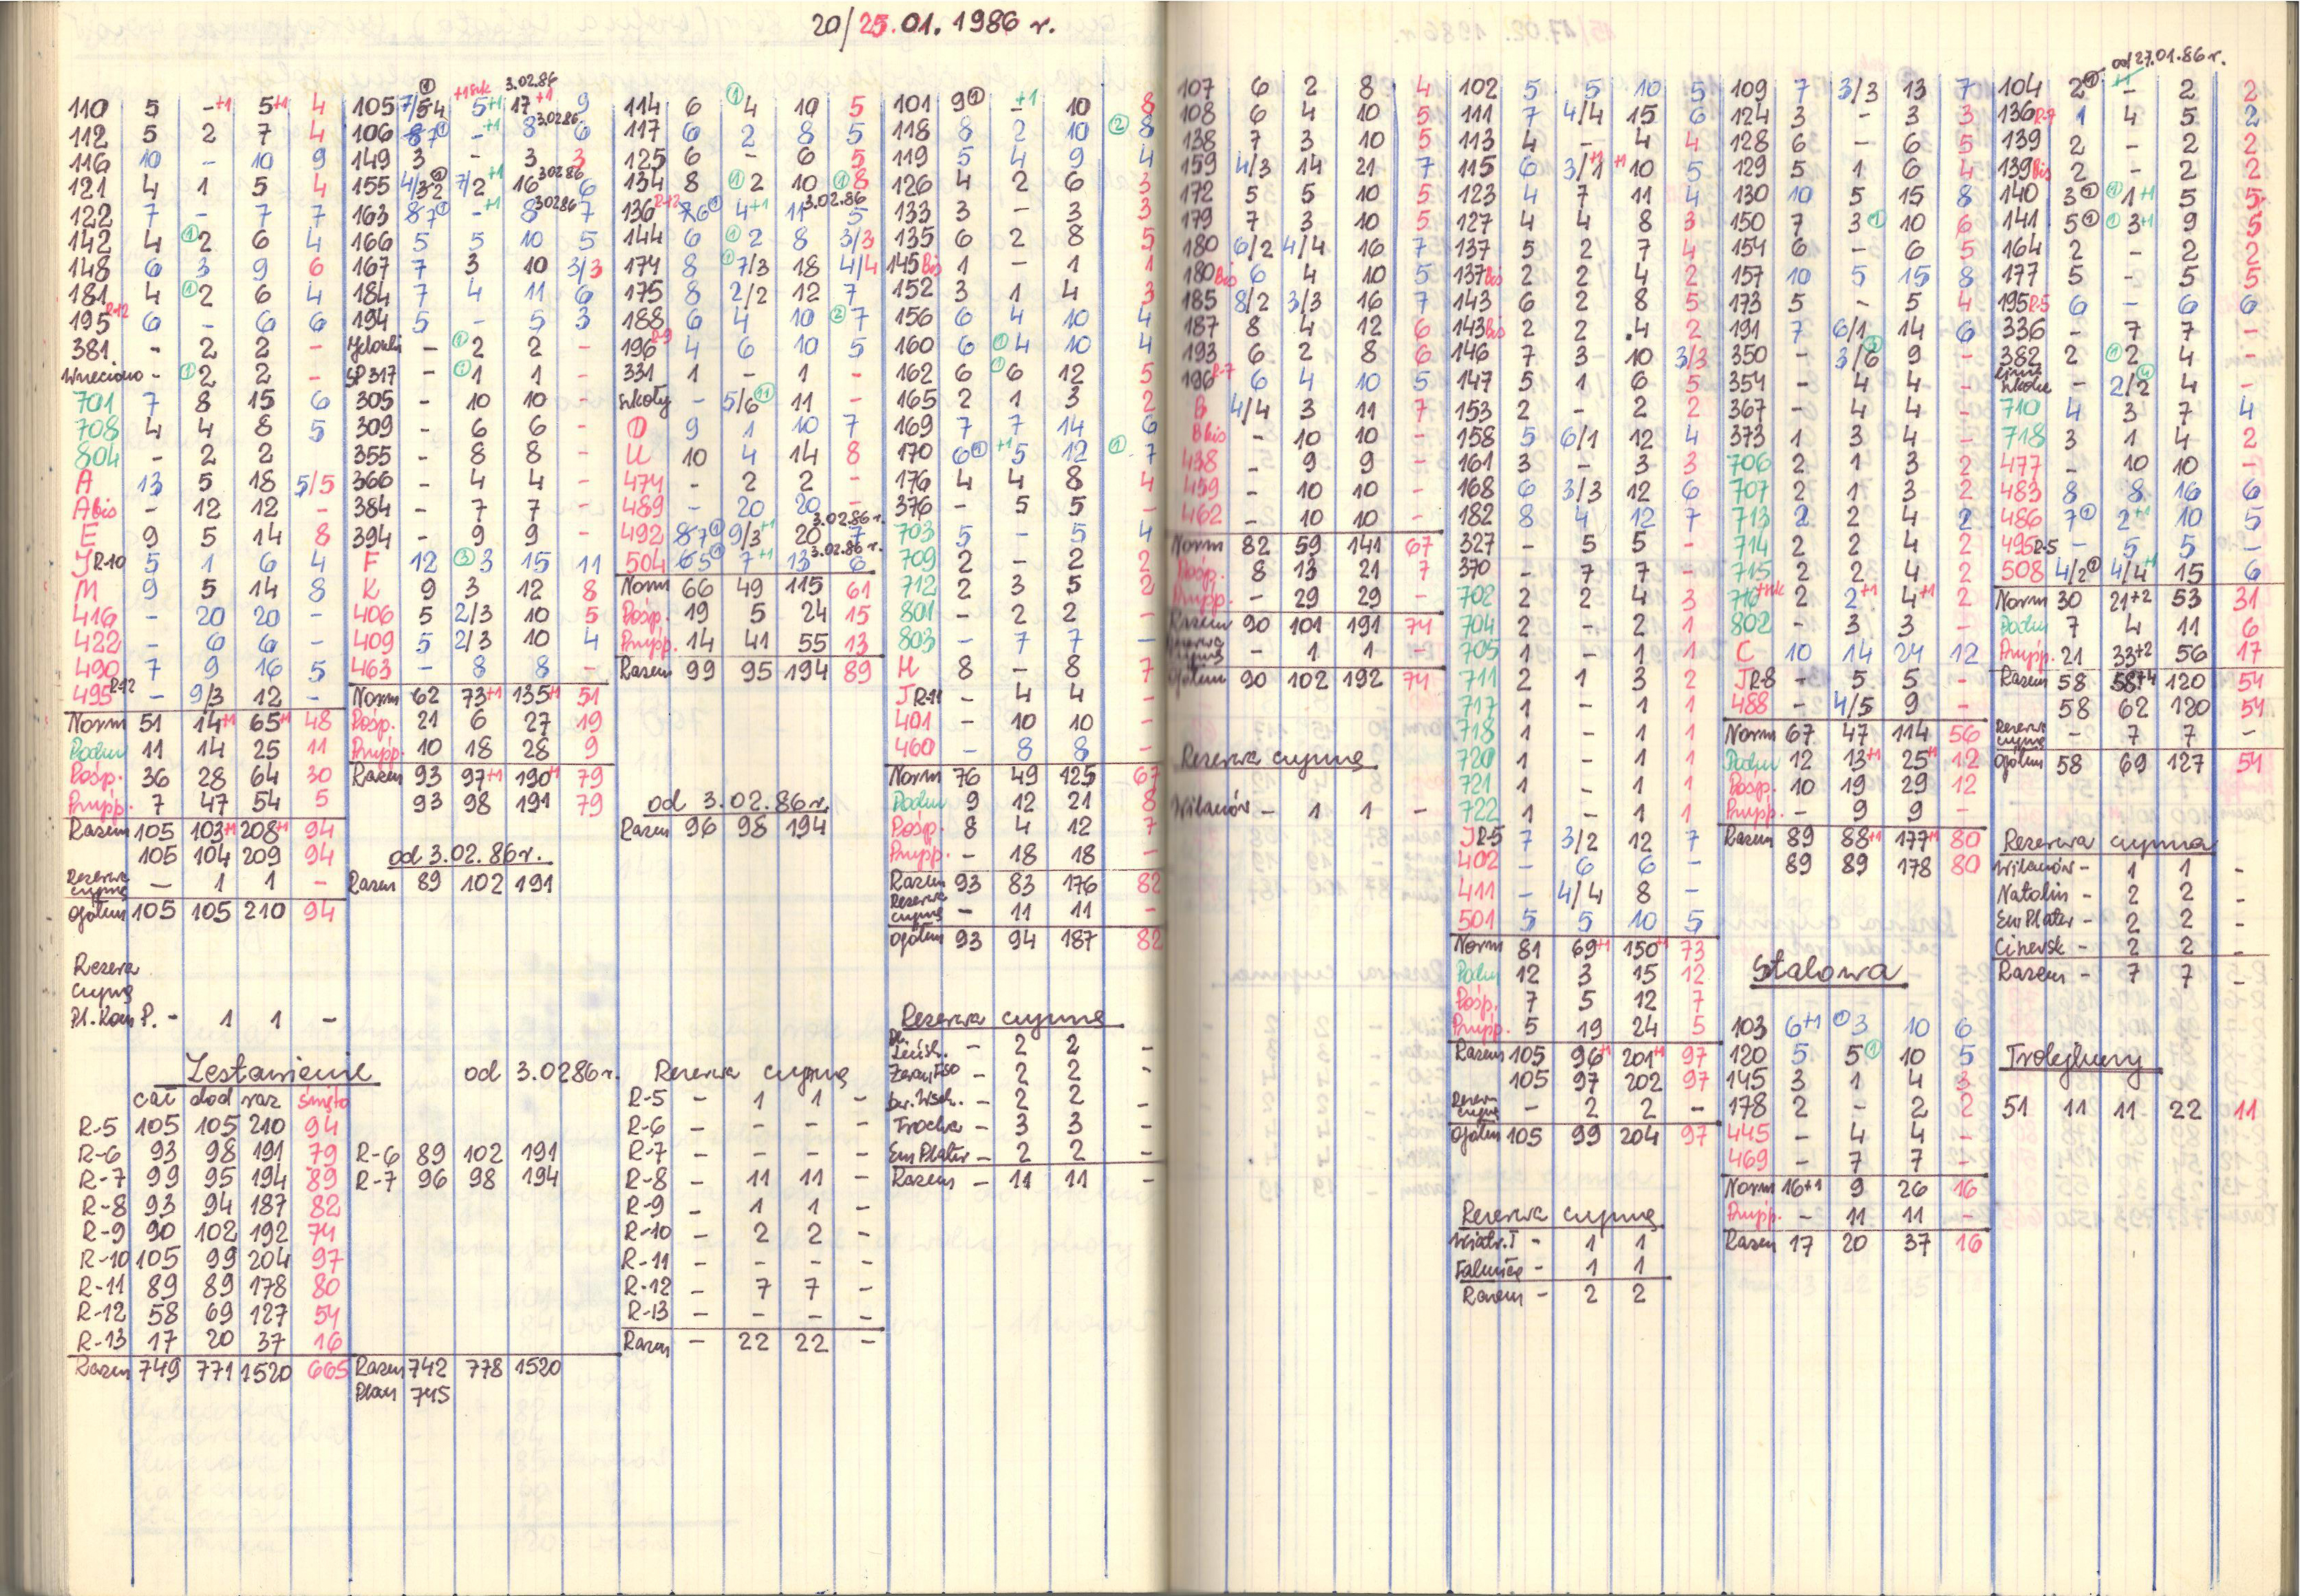 20/25.01.1986 r.
110 5 -+1 5+1 4
112 5 2 7 4
116 10 - 10 9
121 4 1 5 4
122 7 - 7 7
142 4 ①2 6 4
148 6 3 9 6
181 4 ①2 6 4
195 R-12 6 - 6 6
381 - 2 2 -
Wrzeciono - ①2 2 -
701 7 8 15 6
708 4 4 8 5
804 - 2 2 -
A 13 5 18 5/5
A bis - 12 12 -
E 9 5 14 8
J R-10 5 1 6 4
M 9 5 14 8
416 - 20 20 -
422 - 6 6 -
490 7 9 16 5
495 R-12 - 9/3 12 -
Norm 51 14+1 65+1 48
Podm 11 14 25 11
Pośp. 36 28 64 30
Przysp. 7 47 54 5
Razem 105 103+1 208+1 94
105 104 209 94
Rezerwa czynna - 1 1 -
Ogółem 105 105 210 94
Rezerwa
czynna
Pl. Kom P. - 1 1 -
①
+1 szk 3.02.86
105 7/54 5+1 17+1 9
106 87① -+1 8 3.02.86 6
149 3 - 3 3
155 4/32① 7/2+1 16 3.02.86 6
163 87① -+1 8 3.02.86 7
166 5 5 10 5
167 7 3 10 3/3
184 7 4 11 6
194 5 - 5 3
Jelonki - ①2 2 -
SP 317 - ①1 1 -
305 - 10 10 -
309 - 6 6 -
355 - 8 8 -
366 - 4 4 -
384 - 7 7 -
394 - 9 9 -
F 12 ③3 15 11
K 9 3 12 8
406 5 2/3 10 5
409 5 2/3 10 4
463 - 8 8 -
Norm 62 73+1 135+1 51
Pośp. 21 6 27 19
Przysp. 10 18 28 9
Razem 93 97+1 190+1 79
93 98 191 79
od 3.02.86 r.
Razem 89 102 191
114 6 ①4 10 5
117 6 2 8 5
125 6 - 6 5
134 8 ①2 10 ①8
136 R-12 76① 4+1 11 3.02.86 5
144 6 ①2 8 3/3
174 8 ①7/3 18 4/4
175 8 2/2 12 7
188 6 4 10 ②7
196 R-9 4 6 10 5
331 1 - 1 -
Szkoły - 5/6⑪ 11 -
D 9 1 10 7
U 10 4 14 8
474 - 2 2 -
489 - 20 20 -
492 87① 9/3+1 20 3.02.86 r. 7
504 65① 7+1 13 3.02.86 r. 6
Norm 66 49 115 61
Pośp. 19 5 24 15
Przysp. 14 41 55 13
Razem 99 95 194 89
od 3.02.86 r.
Razem 96 98 194
101 9① -+1 10 8
118 8 2 10 ②8
119 5 4 9 4
126 4 2 6 3
133 3 - 3 3
135 6 2 8 5
145 Bis 1 - 1 1
152 3 1 4 3
156 6 4 10 4
160 6 ①4 10 4
162 6 ①6 12 5
165 2 1 3 2
169 7 7 14 6
170 6① +15 12 ①7
176 4 4 8 4
376 - 5 5 -
703 5 - 5 4
709 2 - 2 2
712 2 3 5 2
801 - 2 2 -
803 - 7 7 -
H 8 - 8 7
J R-11 - 4 4 -
401 - 10 10 -
460 - 8 8 -
Norm 76 49 125 67
Podm 9 12 21 8
Pośp. 8 4 12 7
Przysp. - 18 18 -
Razem 93 83 176 82
Rezerwa czynna - 11 11 -
Ogółem 93 94 187 82
Rezerwa czynna
- 2 2 -
Żerań FSO - 2 2 -
Dw. Wsch. - 2 2 -
Trocka - 3 3 -
Em Plater - 2 2 -
Razem - 11 11 -
Zestawienie
cał dod raz święto
R-5 105 105 210 94
R-6 93 98 191 79
R-7 99 95 194 89
R-8 93 94 187 82
R-9 90 102 192 74
R-10 105 99 204 97
R-11 89 89 178 80
R-12 58 69 127 54
R-13 17 20 37 16
Razem 749 771 1520 665
od 3.0286 r.
R-6 89 102 191
R-7 96 98 194
Razem 742 778 1520
Plan 745
Rezerwa czynna
R-5 - 1 1 -
R-6 - - - -
R-7 - - - -
R-8 - 11 11 -
R-9 - 1 1 -
R-10 - 2 2 -
R-11 - - - -
R-12 - 7 7 -
R-13 - - - -
Razem - 22 22 -
107 6 2 8 4
108 6 4 10 5
138 7 3 10 5
159 4/3 14 21 7
172 5 5 10 5
179 7 3 10 5
180 6/2 4/4 16 7
180 Bis 6 4 10 5
185 8/2 3/3 16 7
187 8 4 12 6
193 6 2 8 6
196 R-7 6 4 10 5
B 4/4 3 11 7
B bis - 10 10 -
438 - 9 9 -
459 - 10 10 -
462 - 10 10 -
Norm 82 59 141 67
Pośp. 8 13 21 7
Przysp. - 29 29 -
Razem 90 101 191 74
Rezerwa czynna - 1 1 -
Ogółem 90 102 192 74
Rezerwa czynna
Wilanów - 1 1 -
102 5 5 10 5
111 7 4/4 15 6
113 4 - 4 4
115 6 3/1+1 +110 5
123 4 7 11 4
127 4 4 8 3
137 5 2 7 4
137 bis 2 2 4 2
143 6 2 8 5
143 bis 2 2 4 2
146 7 3 10 3/3
147 5 1 6 5
153 2 - 2 2
158 5 6/1 12 4
161 3 - 3 3
168 6 3/3 12 6
182 8 4 12 7
327 - 5 5 -
370 - 7 7 -
702 2 2 4 3
704 2 - 2 1
705 1 - 1 1
711 2 1 3 2
717 1 - 1 1
718 1 - 1 1
720 1 - 1 1
721 1 - 1 1
722 1 - 1 1
J R-5 7 3/2 12 7
402 - 6 6 -
411 - 4/4 8 -
501 5 5 10 5
Norm 81 69+1 150+1 73
Podm 12 3 15 12
Pośp. 7 5 12 7
Przysp. 5 19 24 5
Razem 105 96+1 201+1 97
105 97 202 97
Rezerw czynna - 2 2 -
Ogółem 105 99 204 97
Rezerwa czynna
Wiatr. I - 1 1
Falenica - 1 1
Razem - 2 2
109 7 3/3 13 7
124 3 - 3 3
128 6 - 6 5
129 5 1 6 4
130 10 5 15 8
150 7 3① 10 6
154 6 - 6 5
157 10 5 15 8
173 5 - 5 4
191 7 6/1 14 6
350 - 3/6③ 9 -
354 - 4 4 -
367 - 4 4 -
373 1 3 4 -
706 2 1 3 2
707 2 1 3 2
713 2 2 4 2
714 2 2 4 2
715 2 2 4 2
716+szk 2 2+1 4+1 2
802 - 3 3 -
C 10 14 24 12
J R-8 - 5 5 -
488 - 4/5 9 -
Norm 67 47 114 56
Podm 12 13+1 25+1 12
Pośp. 10 19 29 12
Przysp. - 9 9 -
Razem 89 88+1 177+1 80
89 89 178 80
Stalowa
103 6+1 ①3 10 6
120 5 5① 10 5
145 3 1 4 3
178 2 - 2 2
445 - 4 4 -
469 - 7 7 -
Norm 16+1 9 26 16
Przysp. - 11 11 -
Razem 17 20 37 16
od 27.01.86 r.
+1
104 2① - 2 2
136 R-7 1 4 5 2
139 2 - 2 2
139 Bis 2 - 2 2
140 3① ①1+1 5 5
141 5① ①3+1 9 5
164 2 - 2 2
177 5 - 5 5
195 R-5 6 - 6 6
336 - 7 7 -
382 2 ①2 4 -
Linie Szkolne - 2/2④ 4 -
710 4 3 7 4
718 3 1 4 2
477 - 10 10 -
483 8 8 16 6
486 7① 2+1 10 5
495 R-5 - 5 5 -
508 4/2① 4/4+1 15 6
Norm 30 21+2 53 31
Podm 7 4 11 6
Przysp. 21 33+2 56 17
Razem 58 58+4 120 54
58 62 120 54
Rezerwa czynna - 7 7 -
Ogółem 58 69 127 54
Rezerwa czynna
Wilanów - 1 1 -
Natolin - 2 2 -
Em Plater - 2 2 -
Cinersk - 2 2 -
Razem - 7 7 -
Trolejbusy
51 11 11 22 11